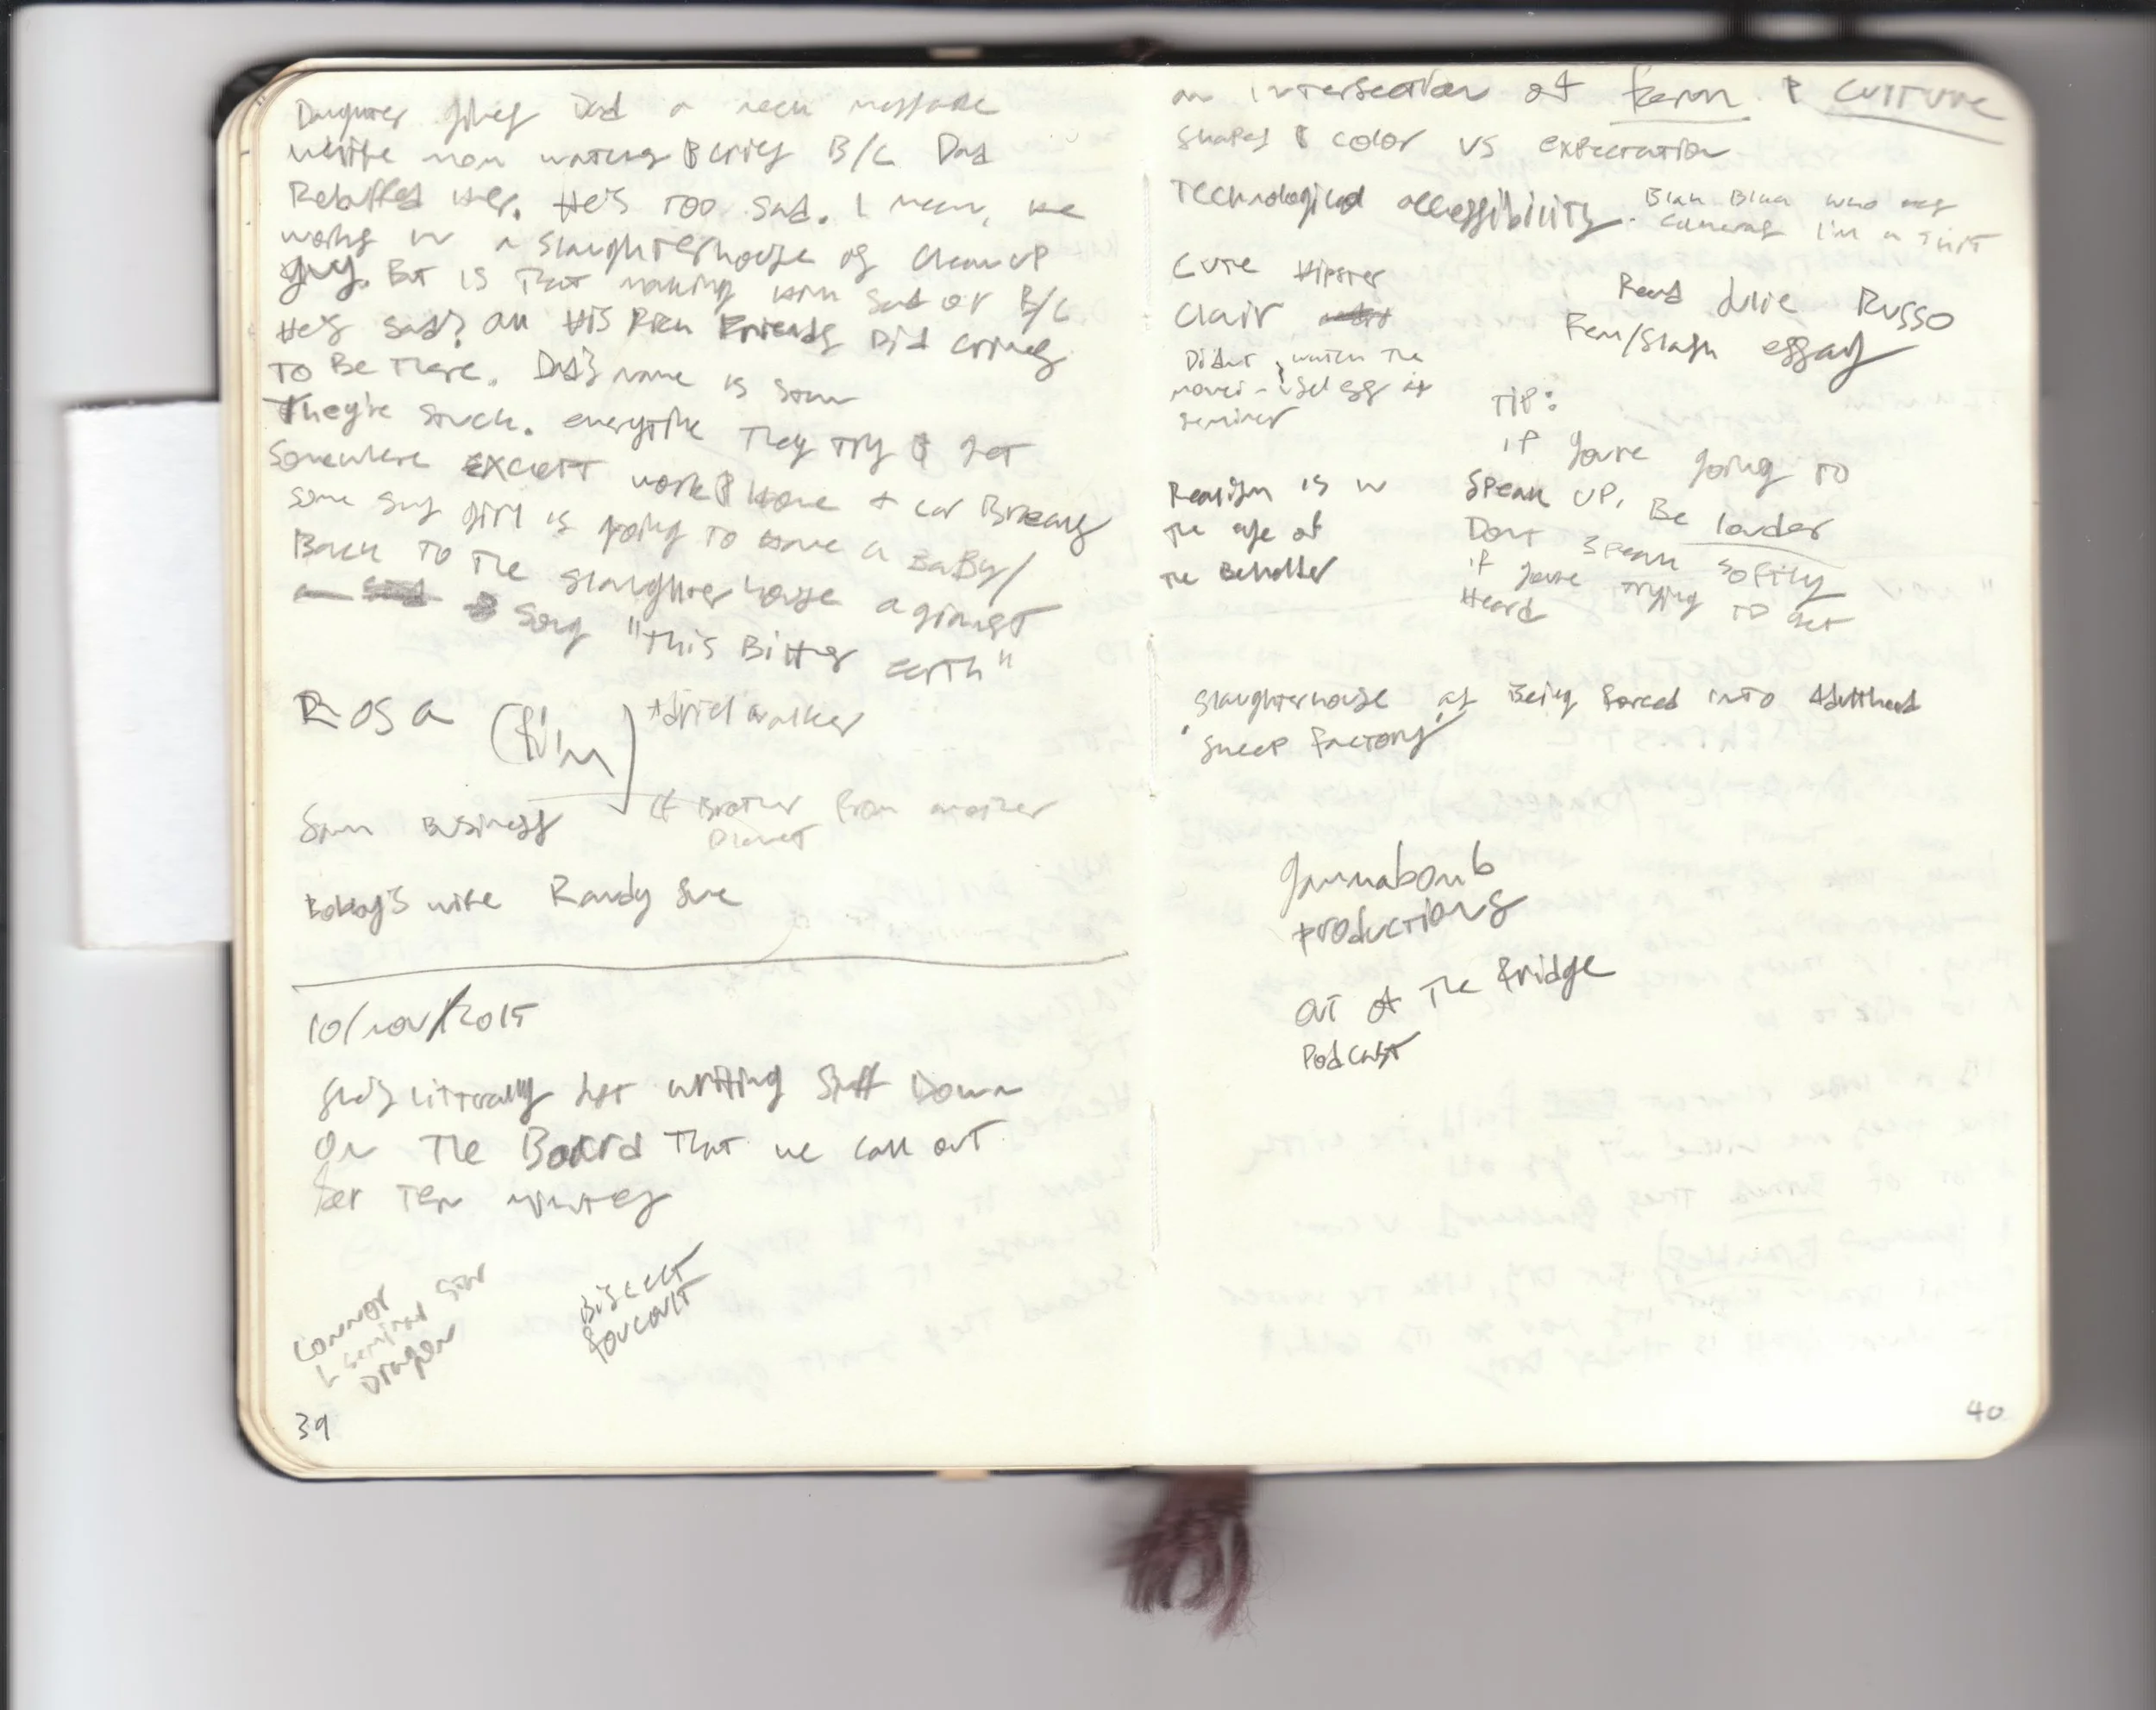 Daughter gives Dad a neck massage
while mom watches & cries B/C Dad
Rebuffed her. He's too sad. I mean, he
works in a slaughterhouse as clean up
guy. But is that making him sad or B/C
He's sad? all His Rich Friends Did crimes
To Be There. Dad's name is Stan
They're stuck. everytime They Try & get
somewhere EXCEPT work & Home + car Breaks
some guy girl is going to Have a BaBy/
Back to the slaughterhouse against
song "This Bitter earth"
Rosa (film)
Spin Business
Bobby's wife Randy Sue
cf Brother from another
Planet
10/nov/2015
She's literally just writing stuff Down
On The Board That we call out
for Ten minutes
Connor
L seminar star
Dragen
Bisect
foucault
39
an intersection of form & culture
shapes & color vs expectation
Technological accessibility. Blah Blah who has
cameras I'm a shit
Cute Hipster
Clair
Didnt watch the
movei -
seminar
Read Julie Russo
Fem/slash essay
Tip:
if you're going to
speak up, Be louder
Dont speak softly
if you're trying to get
Heard
Realism is in
the eye of
the Beholder
slaughterhouse as Being forced into Adulthood
'sheep factory'
Jammabomb
productions
out of The Bridge
Podcast
40